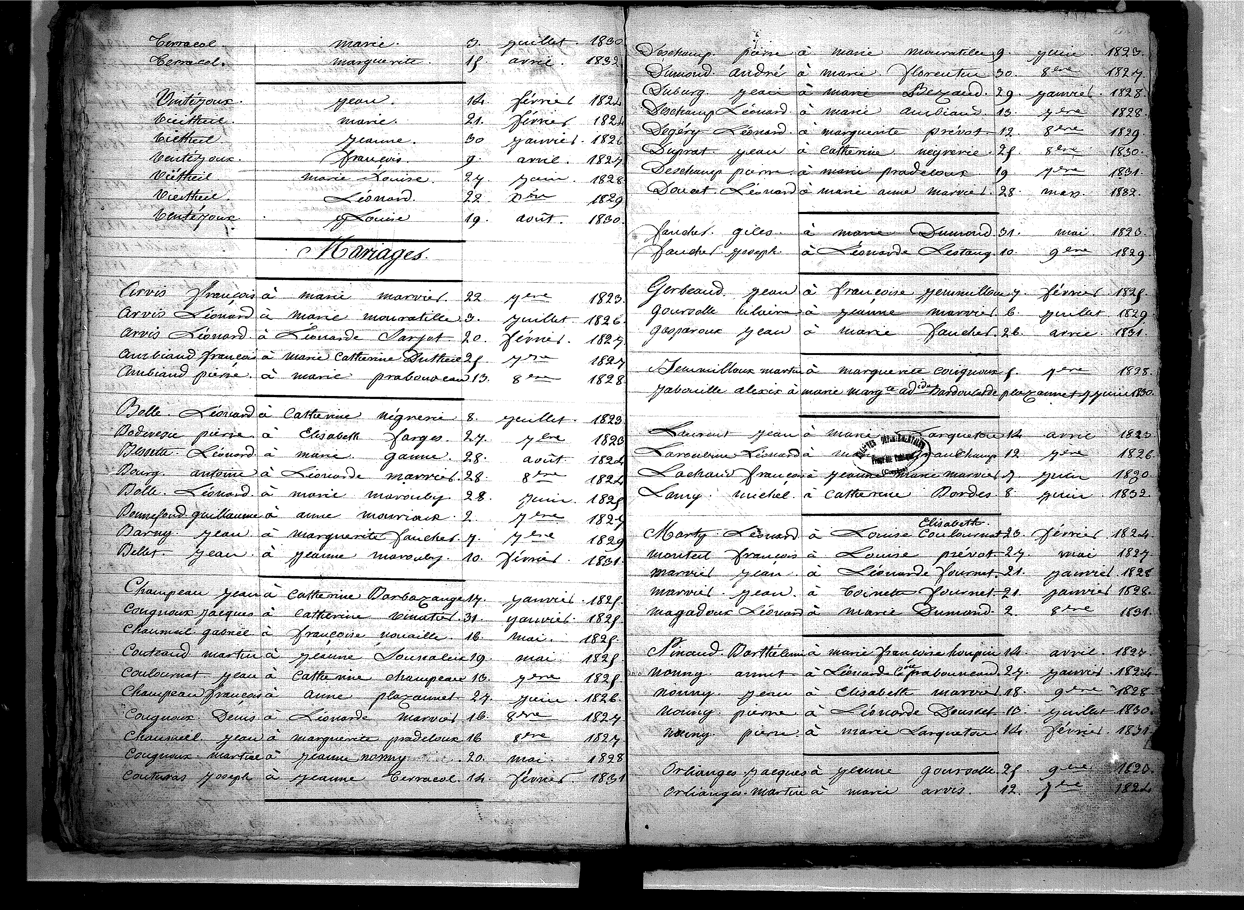 Terracol marie. 3. juillet. 1830
Terracol. marguerite 15 avril. 1832
Ventéjoux. jean. 14. février 1824
Viétheil. marie. 21. février 1824
Viétheil jeanne. 30 janvier 1826
Ventéjoux. françois. 9. avril. 1827
Viétheil marie Louise. 27 juin. 1828
Vietheil Léonard. 22 Xbre 1829
Ventéjoux. Louise 19. août. 1830.
Mariages.
Arvis françois à marie marvier. 22 7bre 1823.
Arvis Léonard à marie mouratille 3. juillet 1826.
Arvis Léonard à Léonarde Farget 20. février. 1827
Aubiaud françois à marie Catherine Dutheil 25 7bre 1827
Aubiaud pierre. à marie praboureau 13. 8bre 1828
Belle. Léonard à Catherine négrerie 8. juillet 1823
pierre à Elisabeth farges. 27. 7bre 1823
Léonard à marie ganne. 28. août. 1824
Bourg antoine à Léonarde marvier. 28 8bre 1824
Bolle. Léonard à marie marouby 28. juin. 1825
Bonnefond guillaume à anne mouriaux 2. 7bre 1827
Barny jean à marguerite faucher. 7. 7bre 1829
Bellet jean à jeanne marouby 10. février. 1831
Champeau jean à Catherine Barbazange 17. janvier 1825.
Cougnoux jacques à Catherine vinatier 31. janvier 1825.
Chaumeil gabriel à françoise nouaille. 16. mai. 1825.
Couteaud martin à jeanne 19. mai. 1825
Coulournat jean à Catherine champeau 13. 7bre 1825
Champeau françois à anne plazannet 27. juin 1826.
Cougnoux Denis à Léonarde marvier 16. 8bre 1827
Chaumeil jean à marguerite pradeloux 16 8bre 1827
Cougnoux martial à jeanne nonny. 20. mai. 1828
Couturas joseph à jeanne Terracol 14. février 1831
Deschamp pierre à marie mouratille 9. juin 1823.
Dumond andré à marie florentin 30. 8bre 1827.
Duburg. jean à marie 29 janvier 1828.
Deschamp Léonard à marie aubiaud 13. 7bre 1828.
Degéry Léonard à marguerite prévot 12. 8bre 1829
Duprat jean à Catherine neyrerie. 25 8bre 1830.
Deschamp pierre. à marie pradeloux 19 7bre 1831.
Doucet Léonard à marie anne marvier. 28. mars 1832.
faucher giles. à marie Dumond 31. mai. 1823.
faucher joseph à Léonarde Lestang 10. 9bre 1829.
Gerbeaud. jean à françoise jemmillou 7. février 1825.
Gourvolle hilaire à jeanne marvier 6. juillet 1829
Gasparoux jean à marie faucher. 26. avril. 1831.
Jenmilloux martin à marguerite cougnoux 5. 7bre 1828.
Jabouille alexis à marie marg.te Dardoularde plazannet 7 juin 1830.
Laurent jean à marie Larquetou 14 avril 1823
Laroubine Léonard à 12 7bre 1826.
Lachaud françois à jeanne marie marvier 7 juin 1830.
Lamy. michel à Catherine Bordes. 8 juin 1832.
Elisabeth.
Marty Léonard à Louise Coulournat 23. février 1824.
monteil françois à Louise prévot 27. mai 1827.
marvier jean à Léonarde fournet. 21. janvier 1828
marvier. jean. à Toinette fournet 21. janvier 1828.
magadoux Léonard à marie Dumond. 2. 8bre 1831.
Ninaud. Barthélemi à marie françoise houpin 14. avril. 1827
Nonny. annet à Léonarde praboureau 27. janvier 1824
nonny. jean à Elisabeth marvier 18. 9bre 1828
nonny. pierre à Léonarde Doussot 10. juillet 1830.
Nonny. pierre à marie Larquetou 14. février 1831.
Orlianges jacques à jeanne gourvolle. 25. 9bre 1823.
Orlianges. martin à marie arvis. 12. 7bre 1824